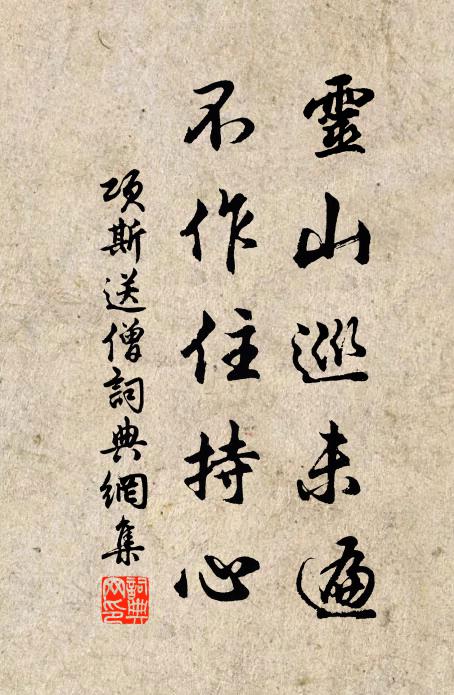 靈山巡未遍
不作住持心
項斯送僧詞典網集
詞典网印